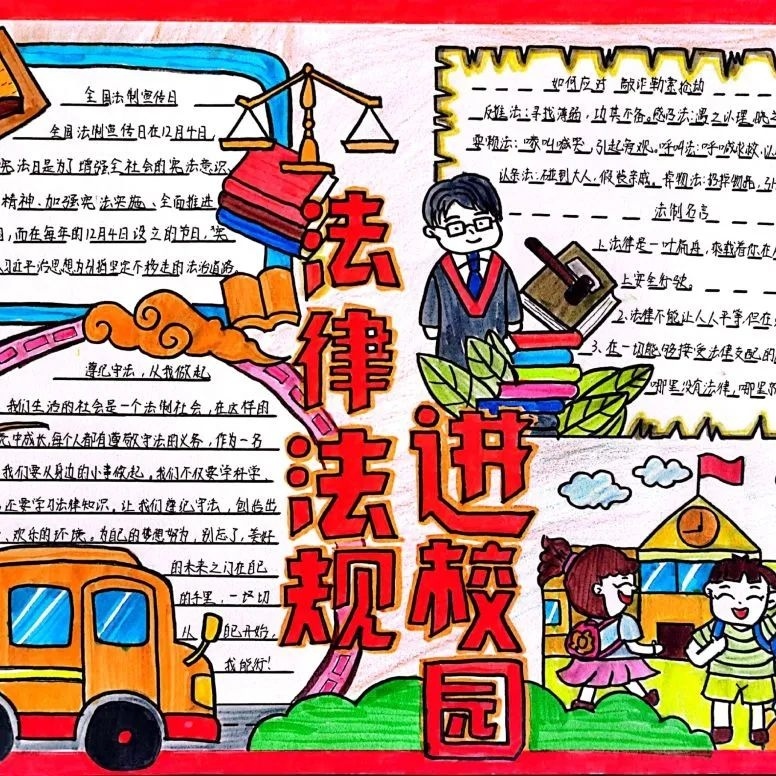 全国法制宣传日
全国法制宣传日在12月4日,
宪法日是为了增强全社会的宪法意识
精神、加强宪法实施、全面推进
,而在每年的12月4日设之的节日,宪
习近平治思想为引指坚定不移走的法治道路.
法律法规
进校园
遵纪守法,从我做起
我们生活的社会是一个法制社会,在这样的
中成长,每个人都有遵敬守法的义务,作为一名
我们要从身边的小事做起,我们不仅要学科学
还要学习法律知识,让我们遵纪守法,创造出
欢乐的环境,为自己的梦想努为,别忘了,美好
的未来之门在自己
的手里,一切
从自己开始,
我能行!
如何应对 敲诈勒索抢劫
反推法:寻找薄弱,攻其不备。感法:遇之以理,
卖物法:喊叫喊哭,引起旁观。呼叫法:呼喊求救,
认亲法:碰到大人,假装亲戚。弃物法:扔掉物品,引
法制名言
1.法律是一叶扁舟,来载着你在
上安全行驶。
2.法律不能让人人平等,但在
3.在一切能够接受法律支配的
哪里没有法律,哪里